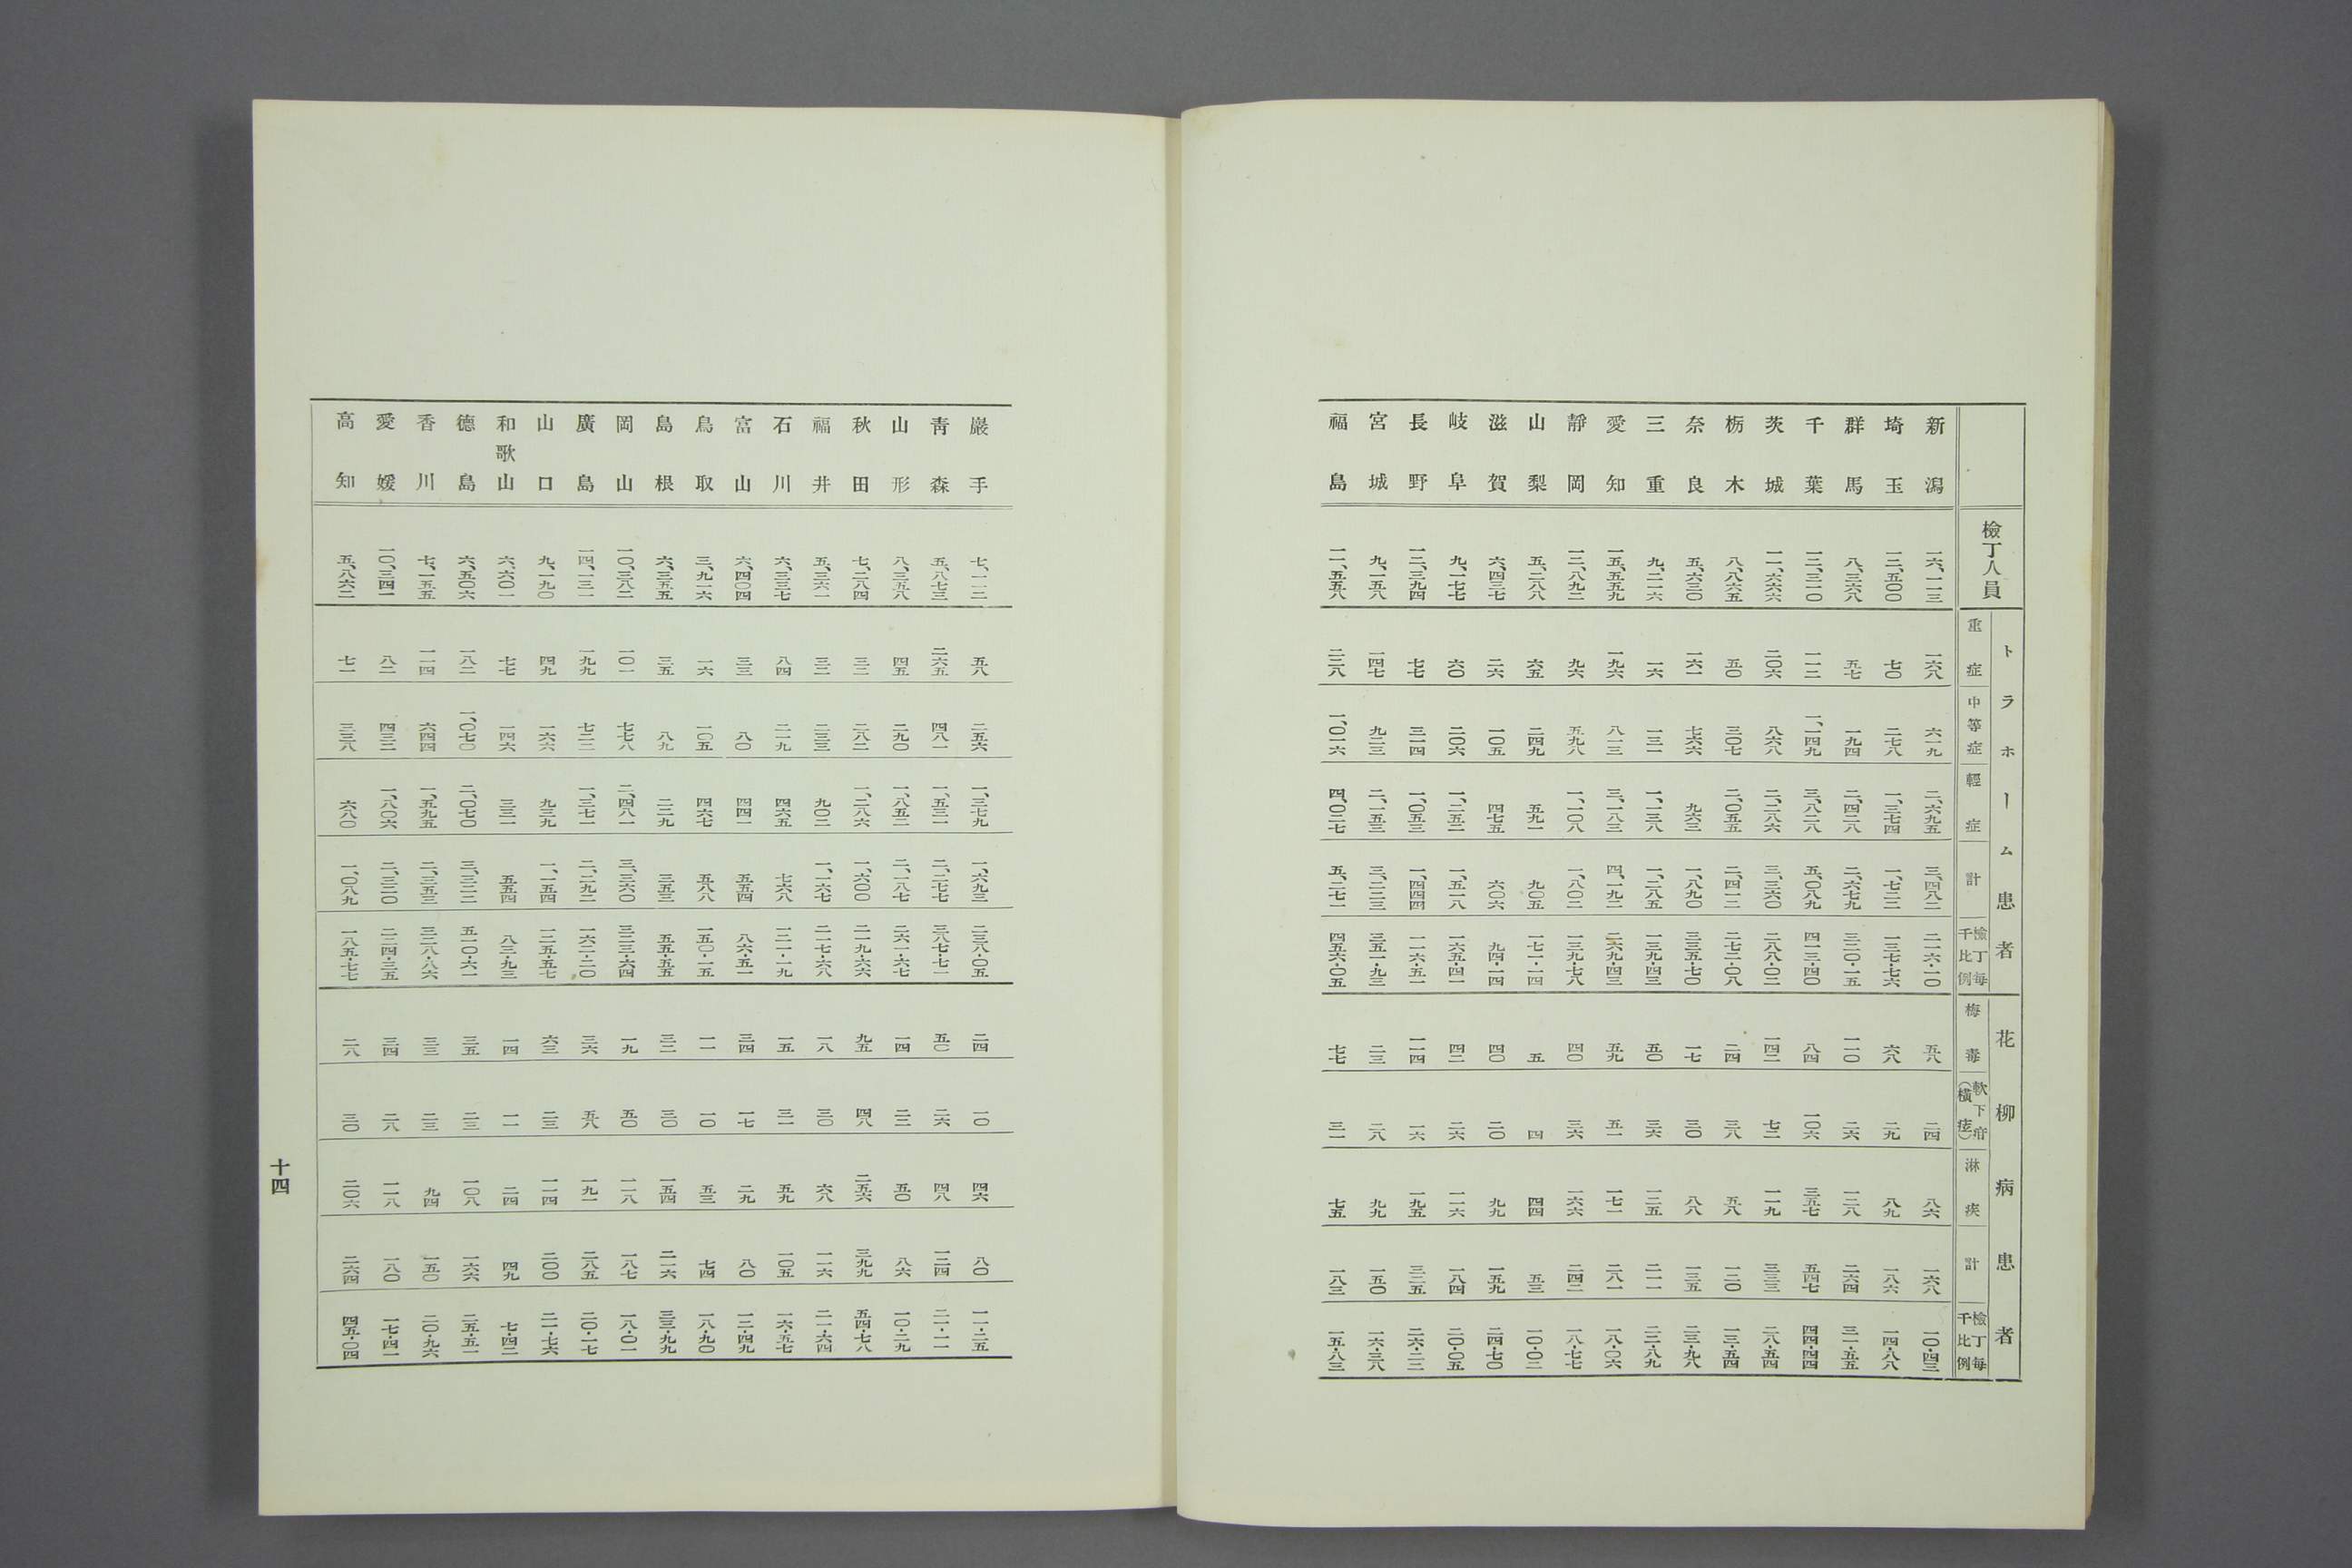 トラホーム患者 花柳病患者
檢丁人員 重症 中等症 輕症 計 檢丁每千比例 梅毒 軟下疳(橫痃) 淋疾 計 檢丁每千比例
新潟 一六、一一三 一六八 六一九 二、六九五 三、四八二 二一六・一〇 五八 二四 八六 一六八 一〇・四三
埼玉 一二、五〇〇 七〇 二七八 一、三七四 一、七二二 一三七・七六 六八 二九 八九 一八六 一四・八八
群馬 八、三六八 五七 一九四 二、四二八 二、六七九 三二〇・一五 一一〇 二六 一二八 二六四 三一・五五
千葉 一二、三一〇 一一二 一、一四九 三、八二八 五、〇八九 四一三・四〇 八四 一〇六 三五七 五四七 四四・四四
茨城 一一、六六六 二〇六 八六八 二、二八六 三、三六〇 二八八・〇二 一四二 七二 一一九 三三三 二八・五四
栃木 八、八六五 五〇 三〇七 二、〇五五 二、四一二 二七二・〇八 二四 三八 五八 一二〇 一三・五四
奈良 五、六三〇 一六一 七六六 九六三 一、八九〇 三三五・七〇 一七 三〇 八八 一三五 二三・九八
三重 九、二一六 一六 一三一 一、一三八 一、二八五 一三九・四三 五〇 三六 一二五 二一一 二二・八九
愛知 一五、五五九 一九六 八一三 三、一八三 四、一九二 二六九・四三 五九 五一 一七一 二八一 一八・〇六
靜岡 一二、八九二 九六 五九八 一、一〇八 一、八〇二 一三九・七八 四〇 三六 一六六 二四二 一八・七七
山梨 五、二八八 六五 二四九 五九一 九〇五 一七一・一四 五 四 四四 五三 一〇・〇二
滋賀 六、四三七 二六 一〇五 四七五 六〇六 九四・一四 四〇 二〇 九九 一五九 二四・七〇
岐阜 九、一七七 六〇 二〇六 一、二五二 一、五一八 一六五・四一 四二 二六 一一六 一八四 二〇・〇五
長野 一二、三九四 七七 三一四 一、〇五三 一、四四四 一一六・五一 一一四 一六 一九五 三二五 二六・二二
宮城 九、一五八 一四七 九二三 二、一五三 三、二二三 三五一・九三 二三 二八 九九 一五〇 一六・三八
福島 一一、五五八 二二八 一、〇一六 四、〇二七 五、二七一 四五六・〇五 七七 三一 七五 一八三 一五・八三
巖手 七、一一二 五八 二五六 一、三七九 一、六九三 二三八・〇五 二四 一〇 四六 八〇 一一・二五
青森 五、八七三 二六五 四八一 一、五三一 二、二七七 三八七・七一 五〇 二六 四八 一二四 二一・一一
山形 八、三五八 四五 二九〇 一、八五二 二、一八七 二六一・六七 一四 二二 五〇 八六 一〇・二九
秋田 七、二八四 三二 二八二 一、二八六 一、六〇〇 二一九・六六 九五 四八 二五六 三九九 五四・七八
福井 五、三六一 三二 二三三 九〇二 一、一六七 二一七・六八 一八 三〇 六八 一一六 二一・六四
石川 六、三三七 八四 二一九 四六五 七六八 一二一・一九 一五 三一 五九 一〇五 一六・五七
富山 六、四〇四 三三 八〇 四四一 五五四 八六・五一 三四 一七 二九 八〇 一二・四九
鳥取 三、九一六 一六 一〇五 四六七 五八八 一五〇・一五 一一 一〇 五三 七四 一八・九〇
島根 六、三五五 三五 八九 二二九 三五三 五五・五五 三二 三〇 一五四 二一六 三三・九九
岡山 一〇、三八二 一〇一 七七八 二、四八一 三、三六〇 三二三・六四 一九 五〇 一一八 一八七 一八・〇一
廣島 一四、一三一 一九九 七二二 一、三七一 二、二九二 一六二・二〇 三六 五八 一九一 二八五 二〇・一七
山口 九、一九〇 四九 一六六 九三九 一、一五四 一二五・五七 六三 二三 一一四 二〇〇 二一・七六
和歌山 六、六〇一 七七 一四六 三三一 五五四 八三・九三 一四 一一 二四 四九 七・四二
德島 六、五〇六 一八二 一、〇七〇 二、〇七〇 三、三二二 五一〇・六一 三五 二三 一〇八 一六六 二五・五一
香川 七、一五五 一一四 六四四 一、五九五 二、三五三 三二八・八六 三三 二三 九四 一五〇 二〇・九六
愛媛 一〇、三四一 八二 四三二 一、八〇六 二、三二〇 二二四・三五 三四 二八 一一八 一八〇 一七・四一
高知 五、八六二 七一 三三八 六八〇 一、〇八九 一八五・七七 二八 三〇 二〇六 二六四 四五・〇四
十四